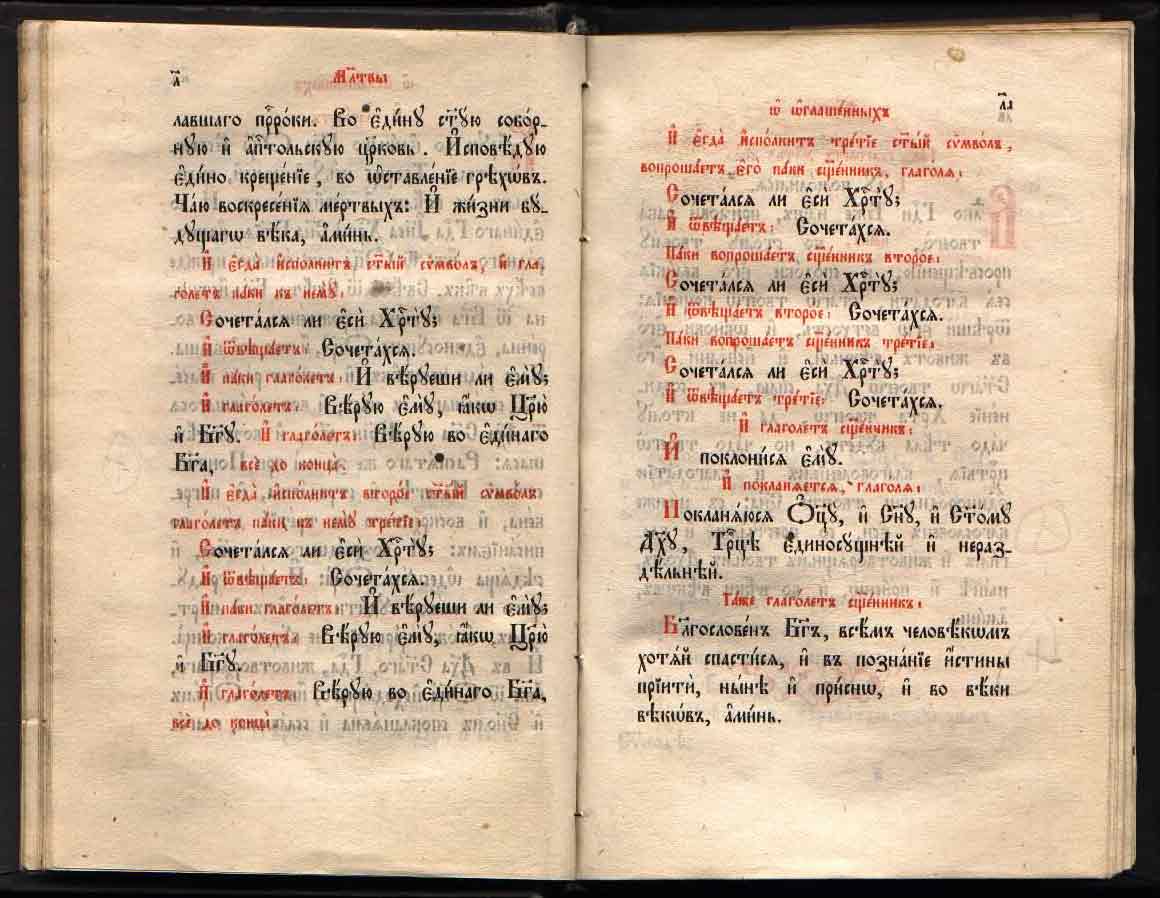 л҃
Мл҃твы
лавшаго прⷪ҇роки. Во є҆ди́нꙋ ст҃ꙋ́ю собо́р-
нꙋю и҆ а҆пⷭ҇тольскꙋю цр҃ковь. И҆сповѣ́дꙋю
є҆ди́но креще́нїе, во ѡ҆ставле́нїе грѣхѡ́въ.
Ча́ю воскресе́нїѧ ме́ртвыхъ: И҆ жи́зни бꙋ́-
дꙋщагѡ вѣ́ка, а҆ми́нь.
И҆ є҆гда̀ и҆спо́лнитъ ст҃ы́й сѷмво́лъ, и҆ гла-
го́летъ па́ки къ немꙋ̀:
Сочета́лсѧ ли є҆сѝ Хрⷭ҇тꙋ̀;
И҆ ѿвѣща́етъ Сочета́хсѧ.
И҆ па́ки глаго́летъ: И҆ вѣ́рꙋеши ли є҆мꙋ̀;
И҆ глаго́летъ: Вѣ́рꙋю є҆мꙋ̀, ꙗ҆́кѡ Цр҃ю̀
и҆ Бг҃ꙋ. И҆ глаго́летъ: Вѣ́рꙋю во є҆ди́наго
Бг҃а, всѐ до конца̀.
И҆ є҆гда̀ и҆спо́лнитъ второ́е ст҃ы́й сѷмво́лъ
глаго́летъ па́ки къ немꙋ̀ тре́тїе:
Сочета́лсѧ ли є҆сѝ Хрⷭ҇тꙋ̀;
И҆ ѿвѣща́етъ Сочета́хсѧ.
И҆ па́ки глаго́летъ: И҆ вѣ́рꙋеши ли є҆мꙋ̀;
И҆ глаго́летъ: Вѣ́рꙋю є҆мꙋ̀, ꙗ҆́кѡ Цр҃ю̀
и҆ Бг҃ꙋ.
И҆ глаго́летъ: Вѣ́рꙋю во є҆ди́наго Бг҃а,
всѐ до конца̀
л҃а
ѡ҆ ѡ҆глаше́нныхъ
И҆ є҆гда̀ и҆спо́лнитъ тре́тїе ст҃ы́й сѷмво́лъ,
вопроша́етъ є҆го̀ па́ки сщ҃е́нникъ, глаго́лѧ:
Сочета́лсѧ ли є҆сѝ Хрⷭ҇тꙋ̀;
И҆ ѿвѣща́етъ: Сочета́хсѧ.
Па́ки вопроша́етъ сщ҃е́нникъ второ́е:
Сочета́лсѧ ли є҆сѝ Хрⷭ҇тꙋ̀;
И҆ ѿвѣща́етъ второ́е: Сочета́хсѧ.
Па́ки вопроша́етъ сщ҃е́нникъ тре́тїе:
Сочета́лсѧ ли є҆сѝ Хрⷭ҇тꙋ̀;
И҆ ѿвѣща́етъ тре́тїе: Сочета́хсѧ.
И҆ глаго́летъ сщ҃е́нникъ:
И҆ поклони́сѧ є҆мꙋ̀.
И҆ покланѧ́етсѧ, глаго́лѧ:
Покланѧ́юсѧ Ѻ҆ц҃ꙋ̀, и҆ Сн҃ꙋ, и҆ Ст҃о́мꙋ
Дх҃ꙋ, Трⷪ҇цѣ є҆диносꙋ́щнѣй и҆ нераз-
дѣ́льнѣй.
Та́же глаго́летъ сщ҃е́нникъ:
Бл҃гослове́нъ Бг҃ъ, всѣ̑мъ человѣ́кѡмъ
хотѧ́й спасти́сѧ, и҆ въ позна́нїе и҆́стины
прїитѝ, ны́нѣ и҆ при́снѡ, и҆ во вѣ́ки
вѣкѡ́въ, а҆ми́нь.